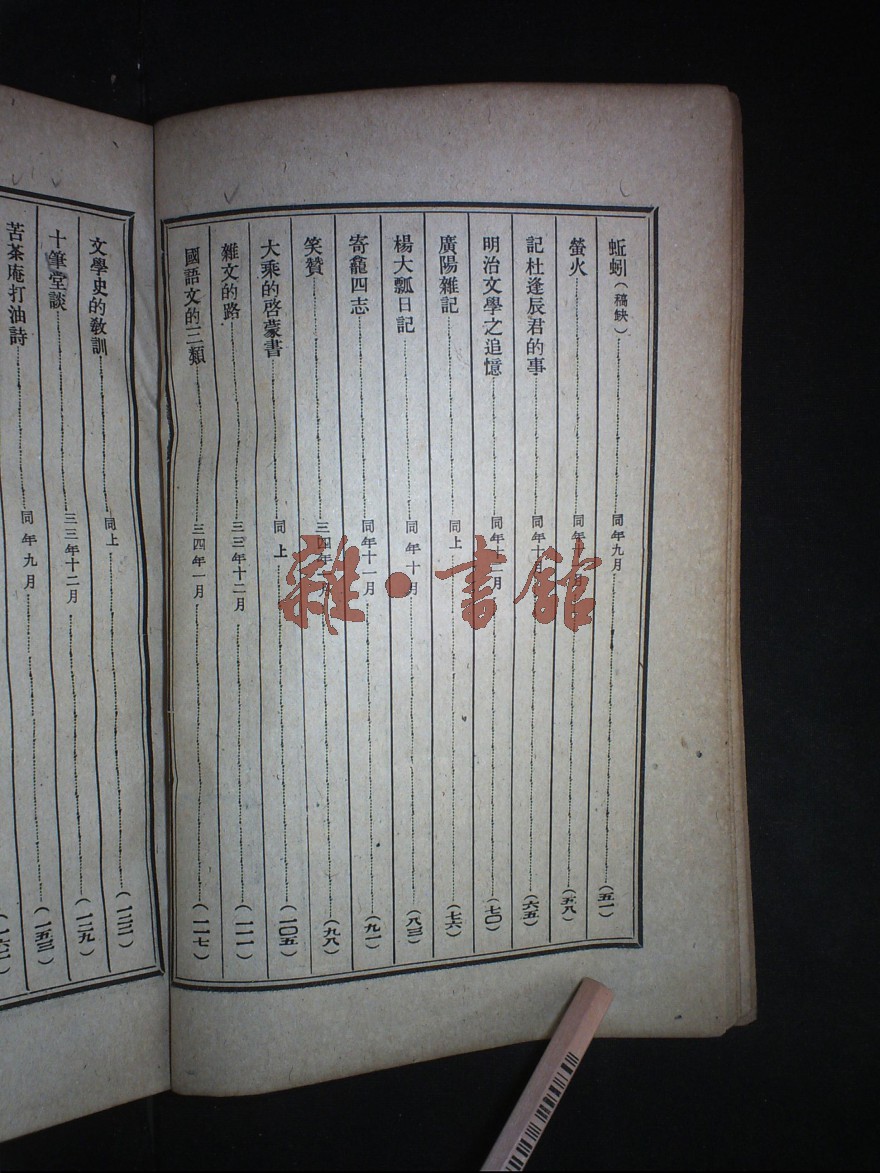 蚯蚓(稿缺)………同年九月………(五一)
螢火………同年十月………(五八)
記杜逢辰君的事………同年十月………(六五)
明治文學之追憶………同年十二月………(七〇)
廣陽雜記………同上………(七六)
楊大瓢日記………同年十月………(八三)
寄龕四志………同年十一月………(九一)
笑贊………三四年一月………(九八)
大乘的啓蒙書………同上………(一〇五)
雜文的路………三三年十二月………(一一一)
國語文的三類………三四年一月………(一一七)
文學史的教訓………同上………(一二二)
十筆堂談………三三年十二月………(一二九)
苦茶庵打油詩………同年九月………(一五三)
雜·書館